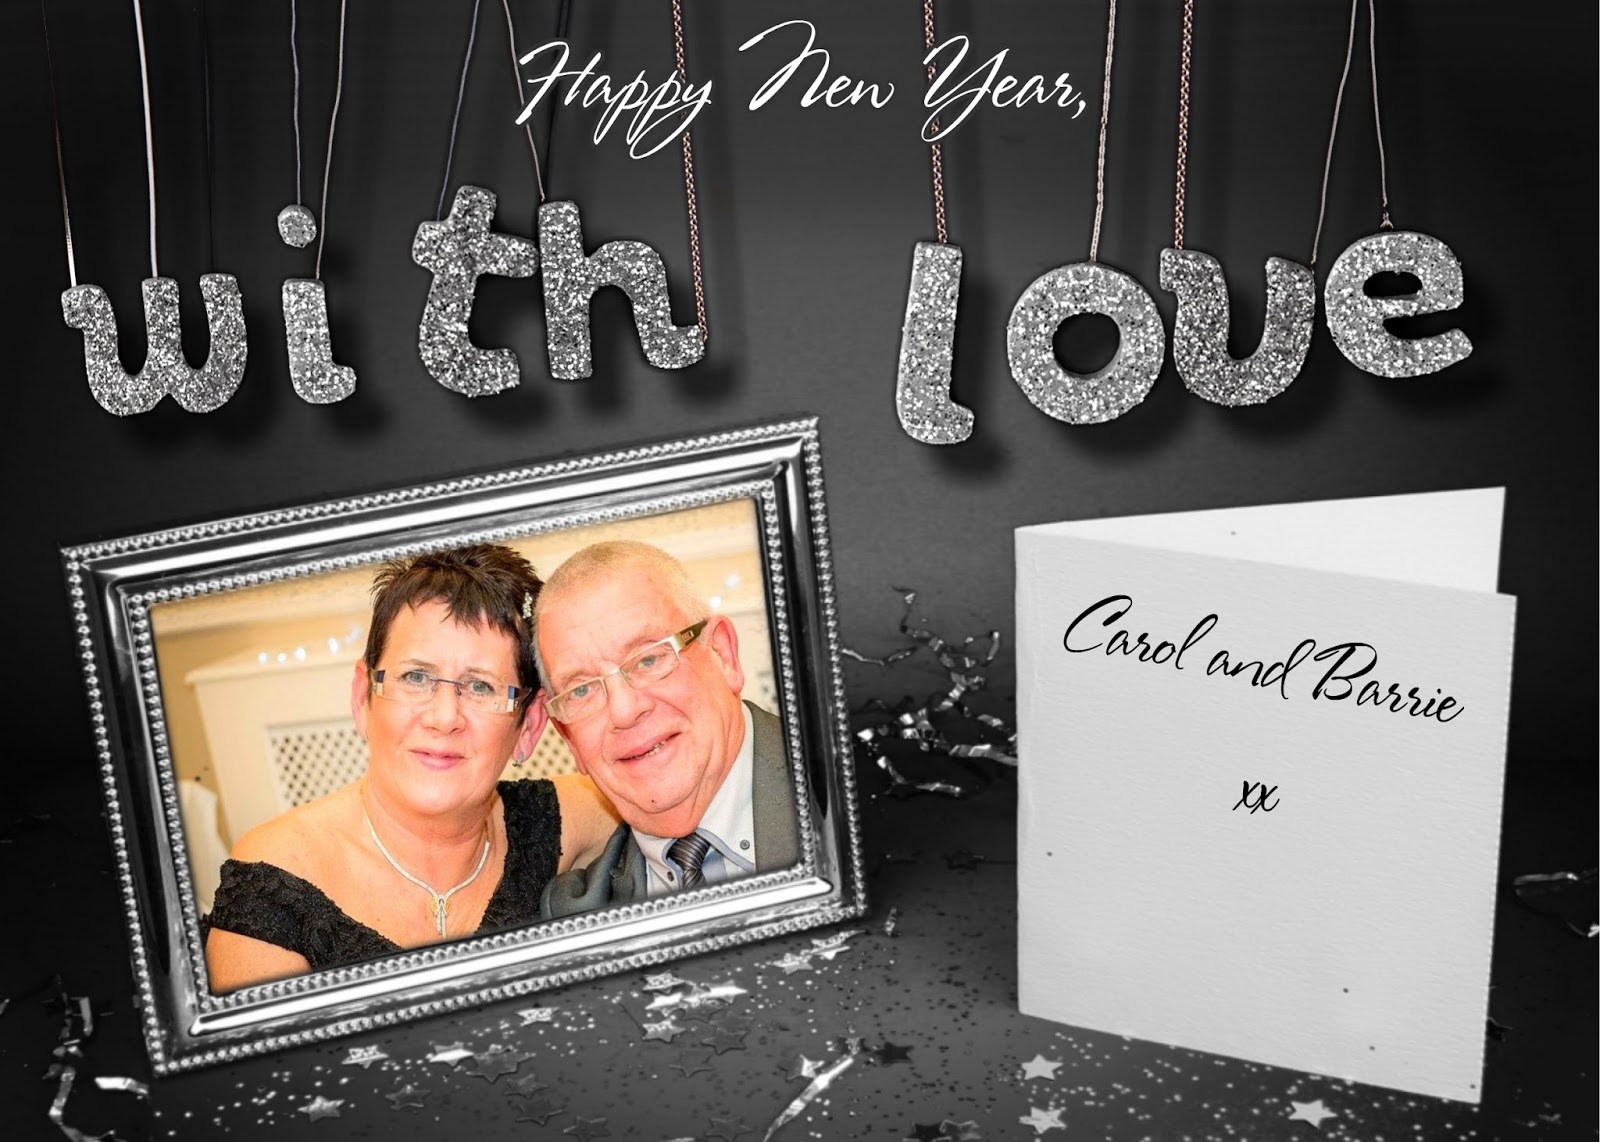 Happy New Year,
with love
Carol and Barrie
xx